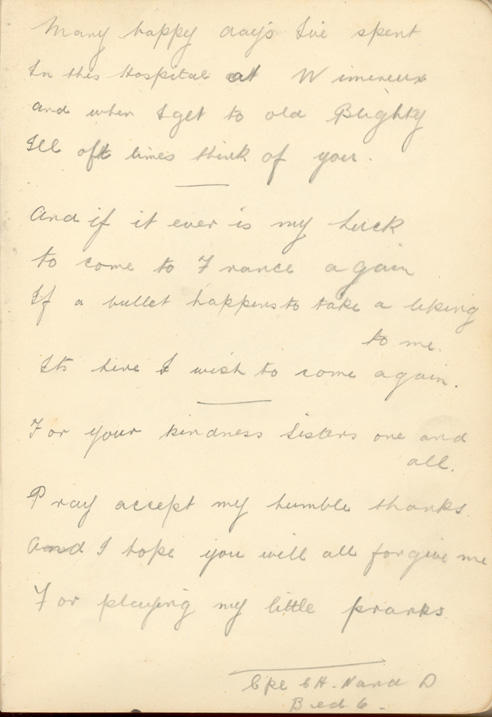 Many happy day's I've spent
In this Hospital at Wimereux
and when I get to old Blighty
Ill oft times think of you.
And if it ever is my luck
to come to France again
If a bullet happens to take a liking
to me.
Its here I wish to come again.
For your kindness Sisters one and
all.
Pray accept my humble thanks.
And I hope you will all forgive me
For playing my little pranks.
Cpl C H. Ward D
Bed 6.